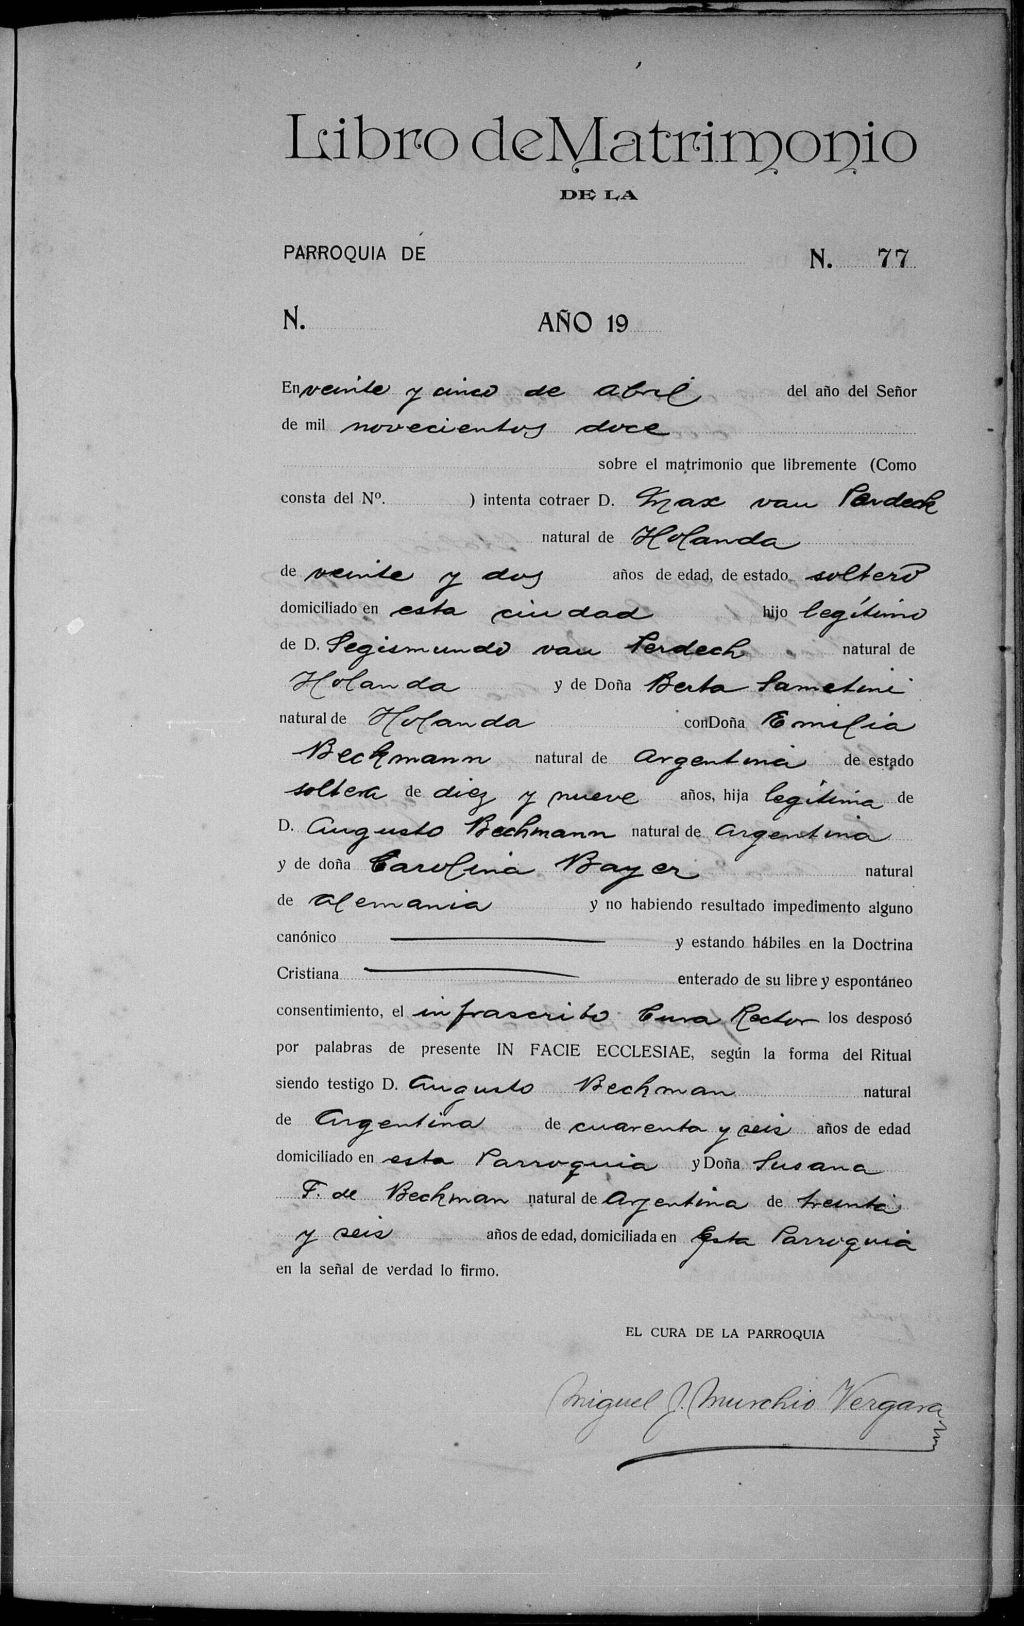 Libro de Matrimonio
DE LA
PARROQUIA DE N. 77
N. AÑO 19
En veinte y cinco de abril del año del Señor
de mil novecientos doce
sobre el matrimonio que libremente (Como
consta del Nº. ) intenta cotraer D. Max van Perdeck
natural de Holanda
de veinte y dos años de edad, de estado soltero
domiciliado en esta ciudad hijo legítimo
de D. Segismundo van Perdech natural de
Holanda y de Doña Berta Sametini
natural de Holanda con Doña Emilia
Beckmann natural de Argentina de estado
soltera de diez y nueve años, hija legítima de
D. Augusto Bechmann natural de Argentina
y de doña Carolina Bayer natural
de Alemania y no habiendo resultado impedimento alguno
canónico y estando hábiles en la Doctrina
Cristiana enterado de su libre y espontáneo
consentimiento, el infrascrito Cura Rector los desposó
por palabras de presente IN FACIE ECCLESIAE, según la forma del Ritual
siendo testigo D. Augusto Bechman natural
de Argentina de cuarenta y seis años de edad
domiciliado en esta Parroquia y Doña Susana
F. de Beckman natural de Argentina de treinta
y seis años de edad, domiciliada en Esta Parroquia
en la señal de verdad lo firmo.
EL CURA DE LA PARROQUIA
Miguel J. Murchio Vergara